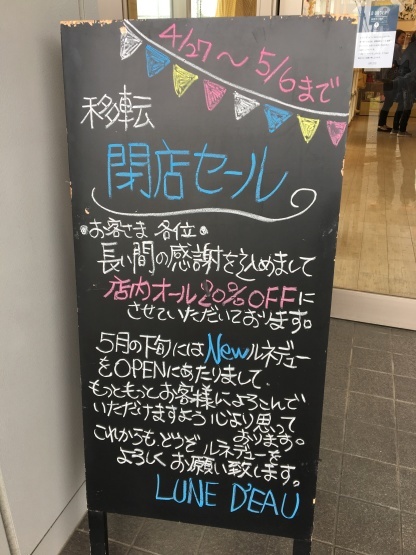 4/27〜5/6まで
移転
閉店セール
お客さま 各位
長い間の感謝を込めまして
店内オール20%OFFに
させていただいております。
5月の下旬にはNewルネデュー
をOPENにあたりまして、
もっともっとお客様によろこんで
いただけますよう心より思って
おります。
これからも、どうぞ ルネデューを
よろしく お願い致します。
LUNE D'EAU